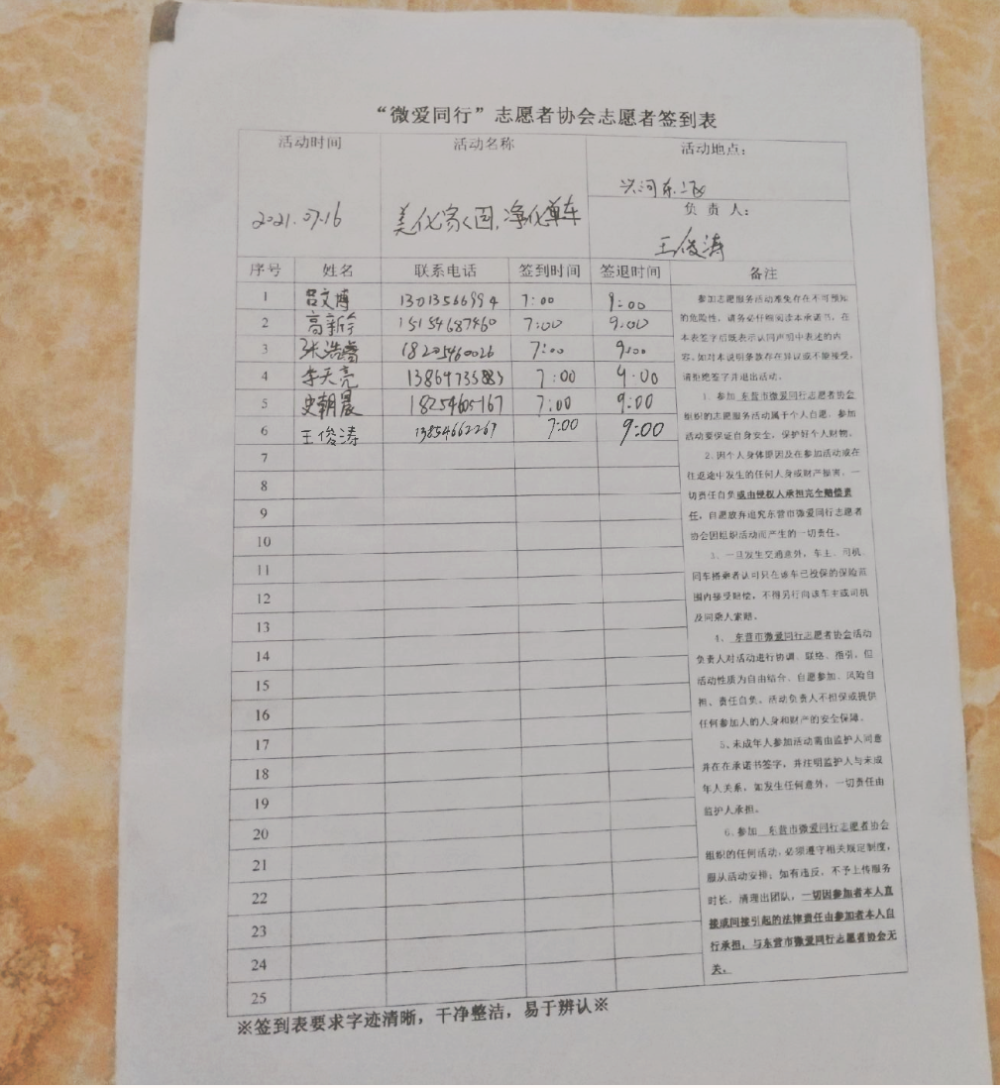 “微爱同行”志愿者协会志愿者签到表
活动时间 活动名称 活动地点:
兴河东二区
2021.07.16 美化家园,净化单车 负责人:
王俊涛
序号 姓名 联系电话 签到时间 签退时间 备注
1 吕文博 13013566994 7:00 9:00
2 高新 15154687460 7:00 9:00
3 张浩睿 18205460026 7:00 9:00
4 李天亮 7:00 9:00
5 史朝晨 18254605167 7:00 9:00
6 王俊涛 13854662267 7:00 9:00
7
8
9
10
11
12
13
14
15
16
17
18
19
20
21
22
23
24
25
参加志愿服务活动难免存在不可预知
的危险性,请务必仔细阅读本承诺书,在
本表签字后既表示认同声明中表述的内
容,如对本说明条款存在异议或不能接受,
请拒绝签字并退出活动。
1、参加 东营市微爱同行志愿者协会
组织的志愿服务活动属于个人自愿,参加
活动要保证自身安全,保护好个人财物。
2、因个人身体原因及在参加活动或在
往返途中发生的任何人身或财产损害,一
切责任自负或由侵权人承担完全赔偿责
任,自愿放弃追究东营市微爱同行志愿者
协会因组织活动而产生的一切责任。
3、一旦发生交通意外,车主、司机、
同车搭乘者认可只在该车已投保的保险范
围内接受赔偿,不得另行向该车主或司机
及同乘人索赔。
4、东营市微爱同行志愿者协会活动
负责人对活动进行协调、联络、指引,但
活动性质为自由结合、自愿参加、风险自
担、责任自负,活动负责人不担保或提供
任何参加人的人身和财产的安全保障。
5、未成年人参加活动需由监护人同意
并在在承诺书签字,并注明监护人与未成
年人关系,如发生任何意外,一切责任由
监护人承担。
6、参加 东营市微爱同行志愿者协会
组织的任何活动,必须遵守相关规定制度,
服从活动安排;如有违反,不予上传服务
时长,清理出团队,一切因参加者本人直
接或间接引起的法律责任由参加者本人自
行承担,与东营市微爱同行志愿者协会无
关。
※签到表要求字迹清晰,干净整洁,易于辨认※